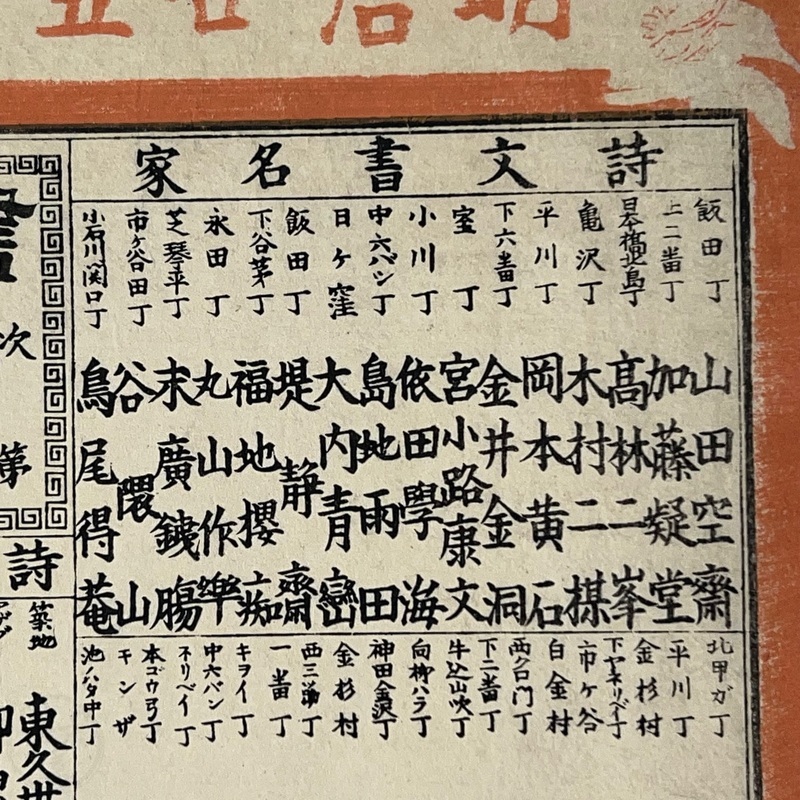 詩文書名家
飯田丁 山田空齋
上二番丁 加藤疑堂
髙林二峯
亀沢丁 木村二棋
平川丁 岡本黄石
下六番丁 金井金洞
室丁 宮小路康文
小川丁 依田學海
中六バン丁 島地雨田
日ヶ窪 大内青巒
飯田丁 堤靜齋
下谷茅丁 福地櫻痴
永田丁 丸山作樂
芝琴平丁 末廣鐵膓
市ヶ谷田丁 谷隈山
小石川関口丁 鳥尾得菴
北甲ガ丁
平川丁
金杉村
市ヶ谷
白金村
下二番丁
牛込山吹丁
向柳ハラ丁
神田金沢丁
金杉村
西三番丁
一番丁
キヲイ丁
中六バン丁
ネリベイ丁
本ゴウ弓丁
キンザ
池ノハタ中丁
次
第
詩
築地
東久世